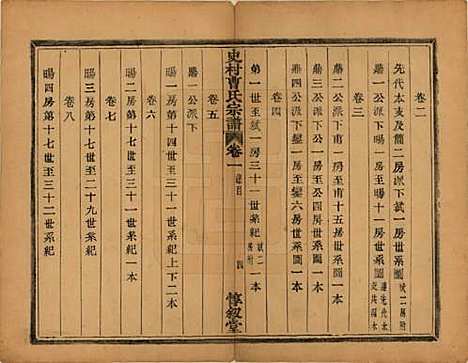 卷二
先代本支及龍二房派下試一房世系圖 試二房附
鼎一公派下暘一房世系圖
卷三
鼎一公派下宙一至宙十五房世系圖
鼎三公派下鑾一至公四房世系圖
鼎四公派下鑾一至鑾六房世系圖
卷四
第一世至試一房三十一世系紀 試二房附 一本
史村曹氏宗譜 卷一 總目 四 惇敘堂
卷五
鼎一公派下
暘一房第十七世至三十一世系紀上下二本
卷六
暘二房第十七世至三十一世系紀一本
卷七
暘三房第十七世至二十九世系紀一本
卷八
暘四房第十七世至三十二世系紀